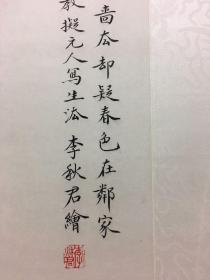 啬去却疑春色在鄰家
擬元人寫生法 李秋君繪